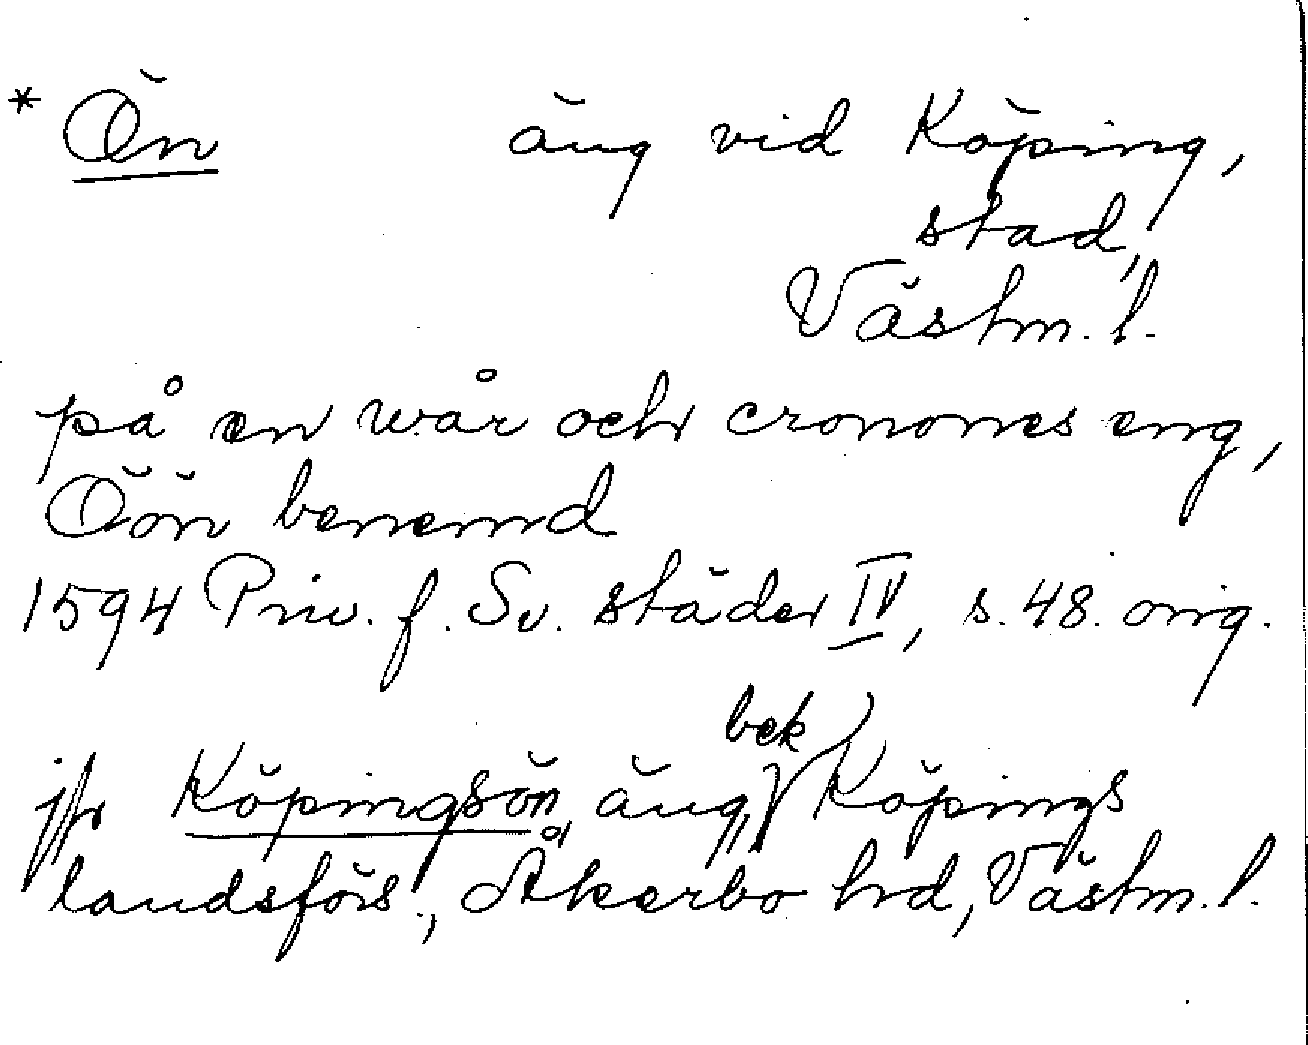 * Ön äng vid Köping,
stad,
Västm. l.
på en wår och cronones eng,
Öön benemd
1594 Priv. f. Sv. städer IV, s. 48. orig.
bek
jfr Köpingsön, äng, Köpings
landsförs., Åkerbo hd, Västm. l.